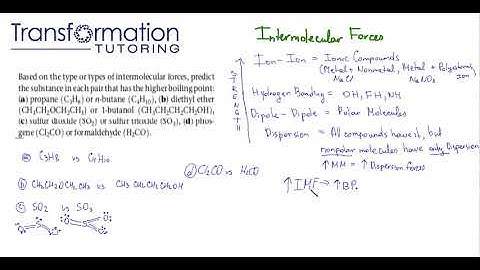 Transformation
TUTORING
Based on the type or types of intermolecular forces, predict
the substance in each pair that has the higher boiling point:
(a) propane (C₃H₈) or n-butane (C₄H₁₀), (b) diethyl ether
(CH₃CH₂OCH₂CH₃) or 1-butanol (CH₃CH₂CH₂CH₂OH),
(c) sulfur dioxide (SO₂) or sulfur trioxide (SO₃), (d) phos-
gene (Cl₂CO) or formaldehyde (H₂CO).
a) C₃H₈ vs C₄H₁₀
d) Cl₂CO vs H₂CO
b) CH₃CH₂OCH₂CH₃ vs CH₃CH₂CH₂CH₂OH
c) SO₂ vs SO₃
O S O
O S O
O
Intermolecular Forces
STRENGTH
Ion-Ion = Ionic Compounds
(Metal + Nonmetal, Metal + Polyatomic
NaCl NaNO₃ Ion)
Hydrogen Bonding = OH, FH, NH
Dipole-Dipole = Polar Molecules
Dispersion = All compounds have it, but
nonpolar molecules have only Dispersion
↑ MM = ↑ Dispersion forces
↑ IMF → ↑ BP.